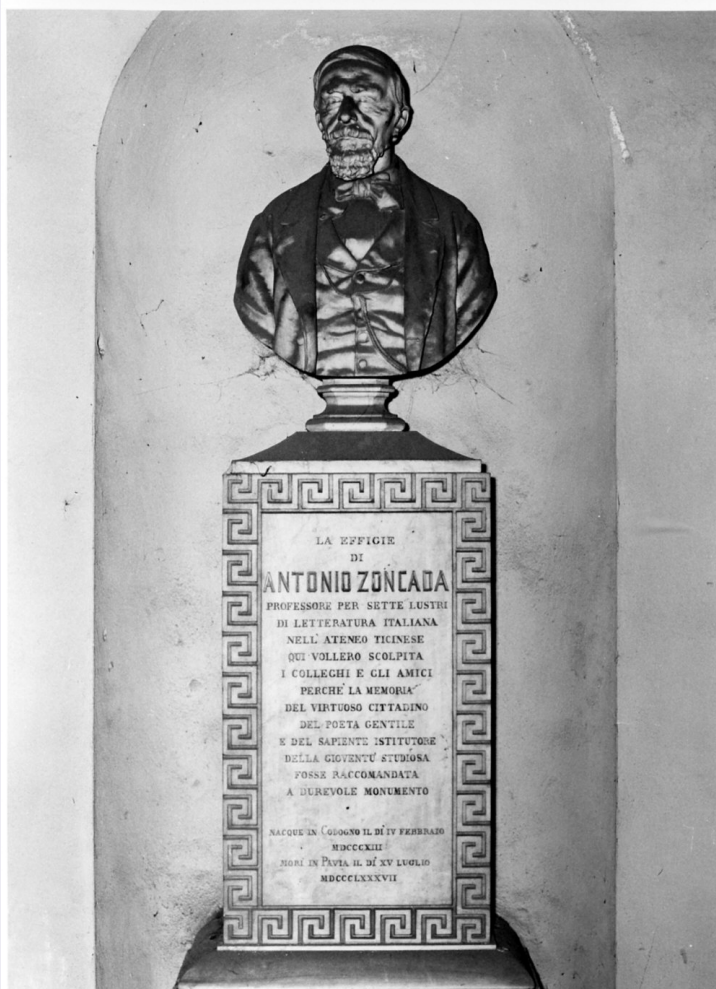 LA EFFIGIE
DI
ANTONIO ZONCADA
PROFESSORE PER SETTE LUSTRI
DI LETTERATURA ITALIANA
NELL' ATENEO TICINESE
QUI VOLLERO SCOLPITA
I COLLEGHI E GLI AMICI
PERCHE' LA MEMORIA
DEL VIRTUOSO CITTADINO
DEL POETA GENTILE
E DEL SAPIENTE ISTITUTORE
DELLA GIOVENTU' STUDIOSA
FOSSE RACCOMANDATA
A DUREVOLE MONUMENTO
NACQUE IN CODOGNO IL DI' IV FEBBRAIO
MDCCCXIII
MORI IN PAVIA IL DI' XV LUGLIO
MDCCCLXXXVII